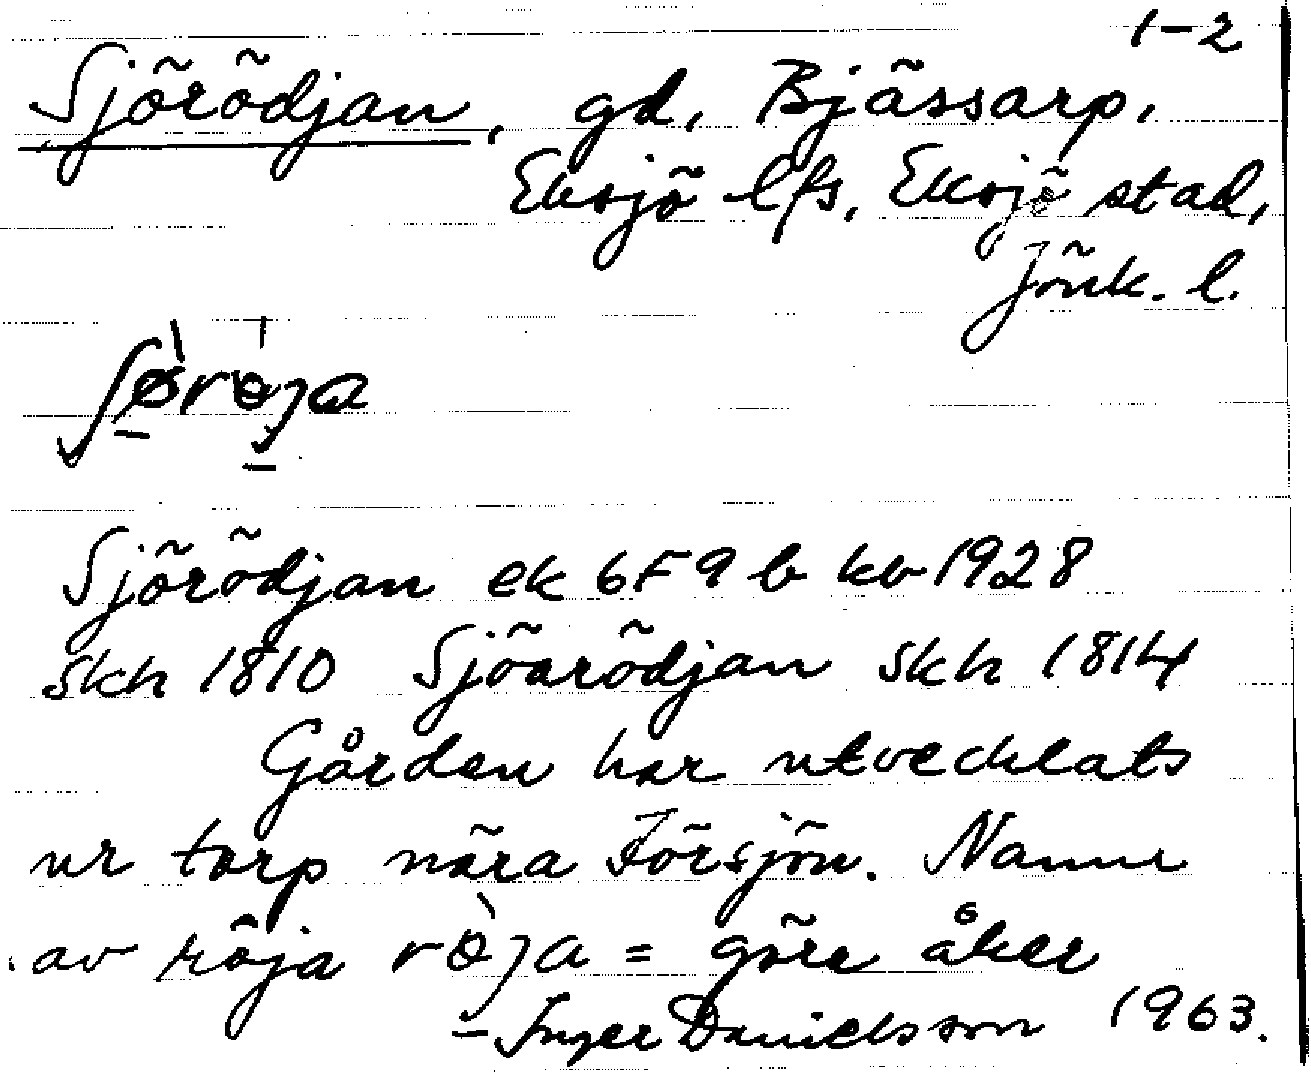 1-2
Sjörödjan, gd, Bjässarp,
Eksjö lfs, Eksjö stad,
Jönk. l.
Sjörödjan ek 6F9b kv 1928
skh 1810 Sjöarödjan skh 1814
Gården har utvecklats
ur torp nära Försjön. Namn
av röja = göra åker
Inger Danielsson 1963.